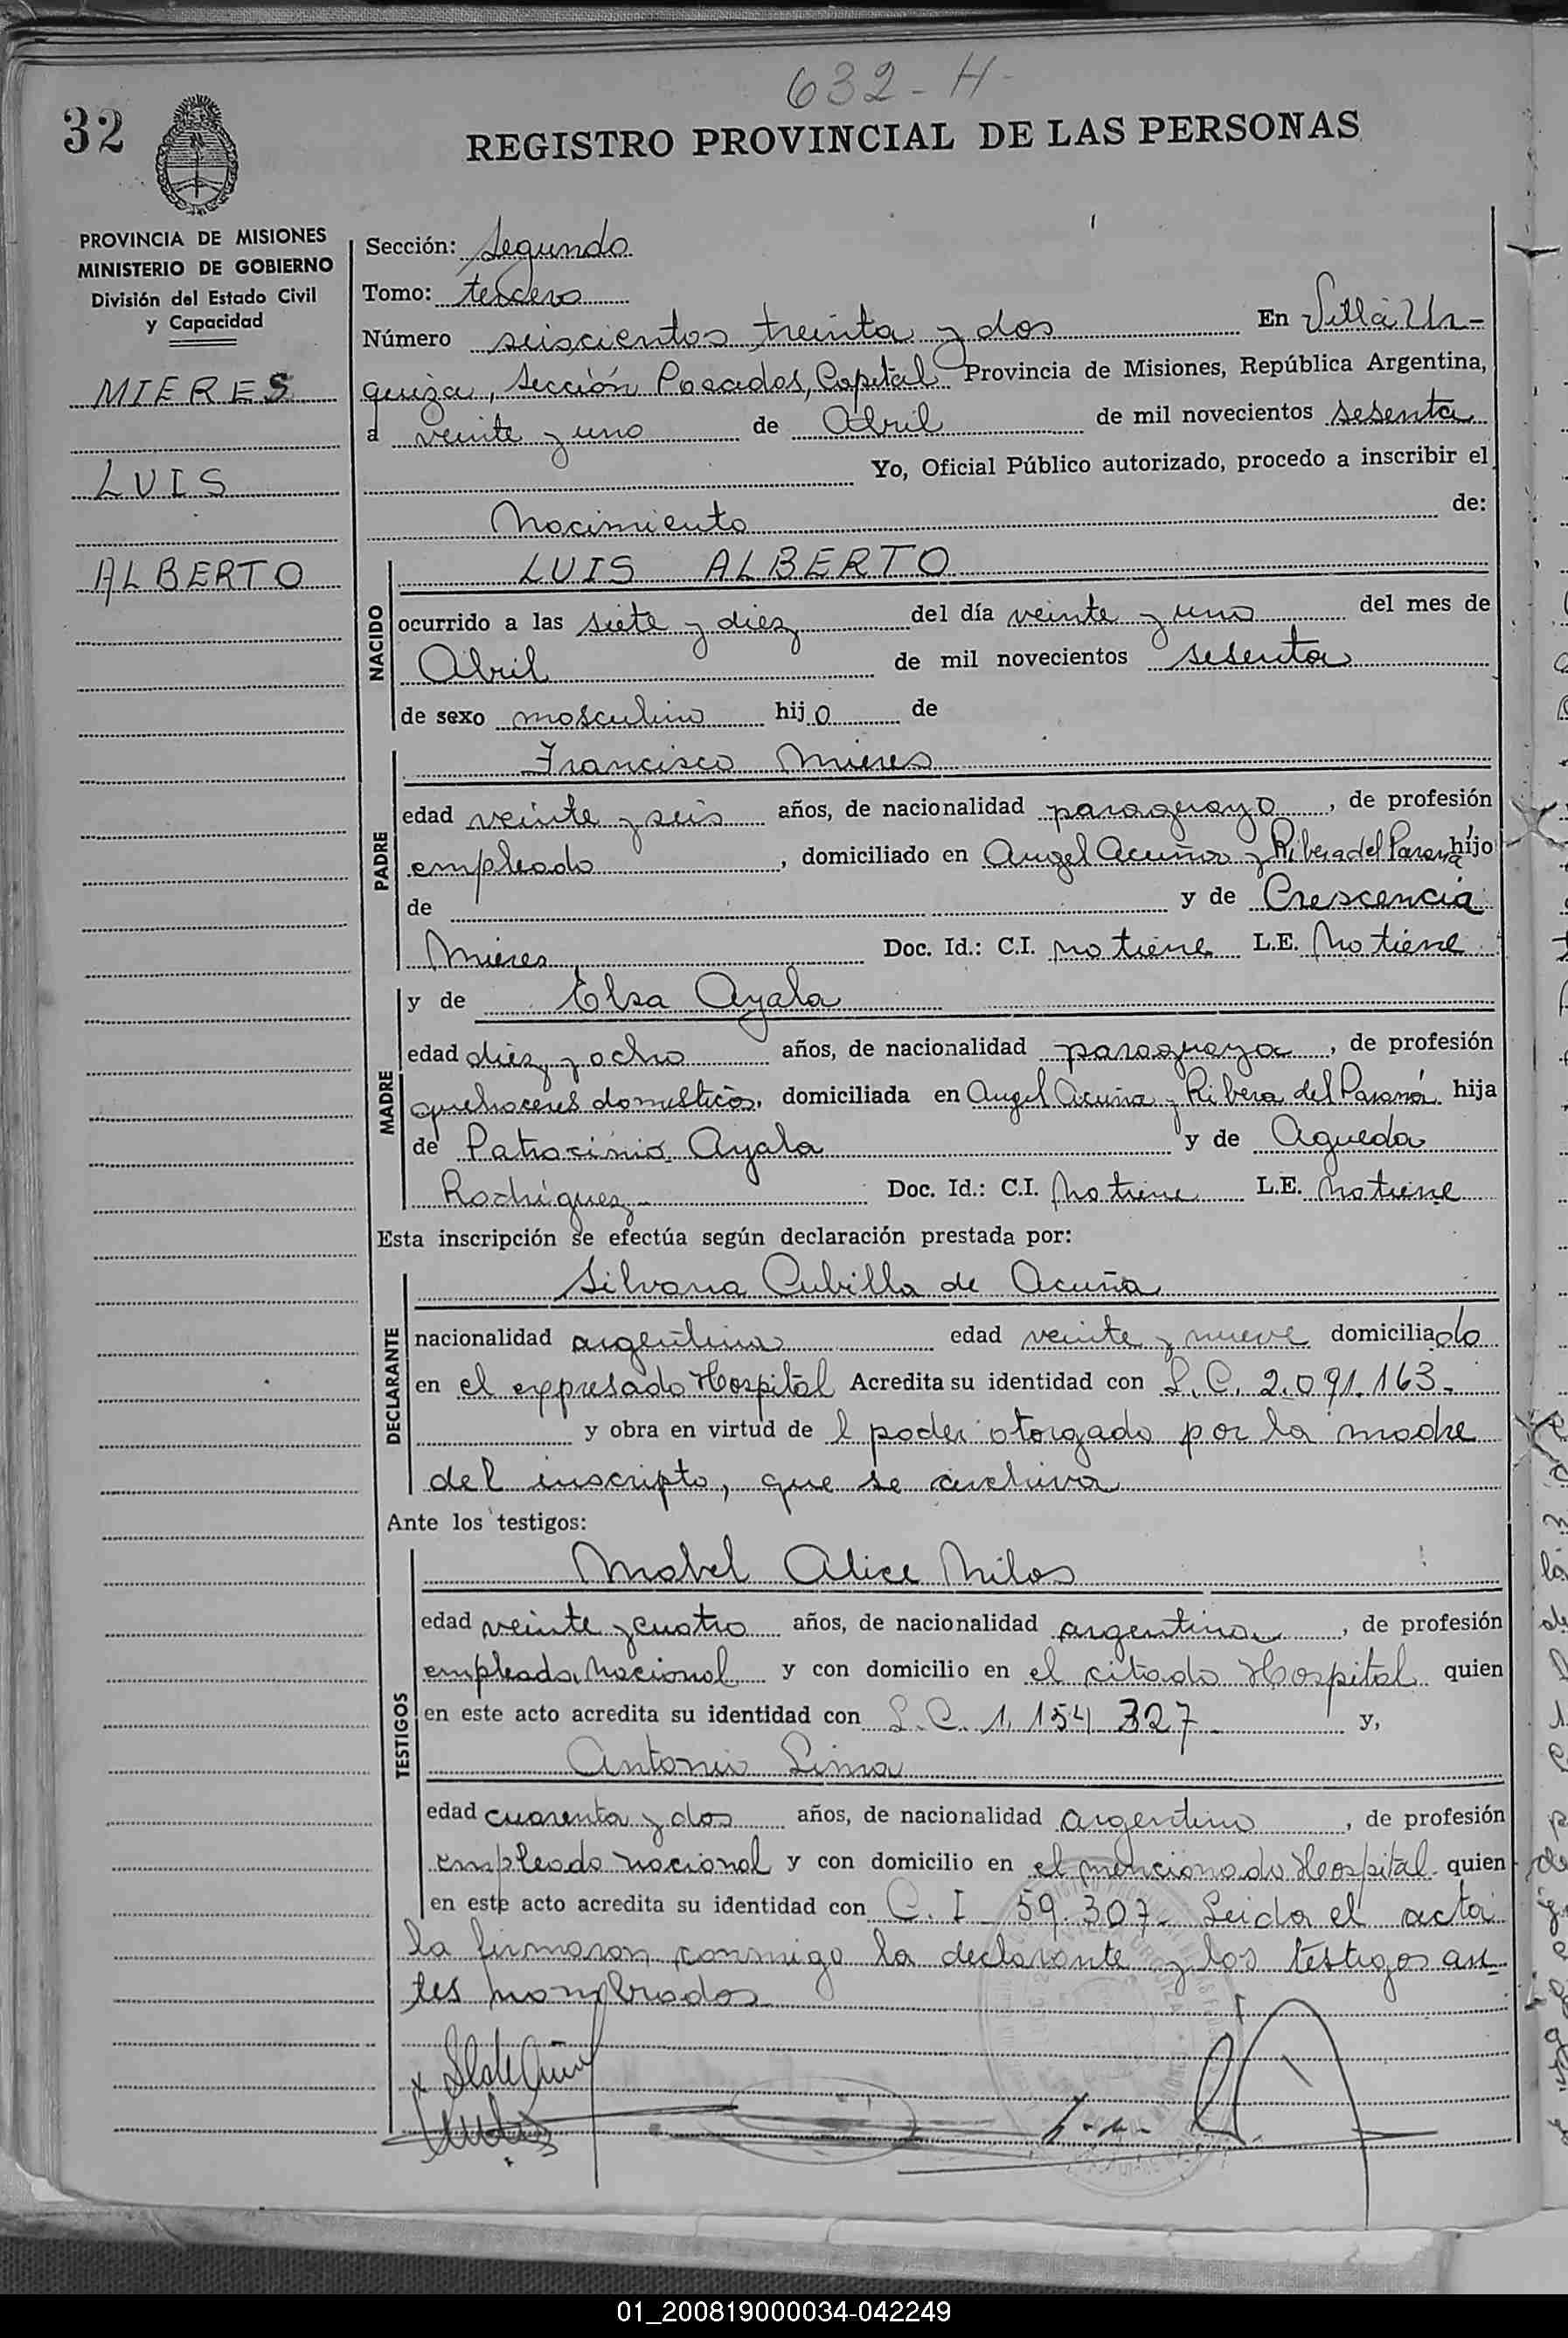 632 - H -
32
REGISTRO PROVINCIAL DE LAS PERSONAS
PROVINCIA DE MISIONES
MINISTERIO DE GOBIERNO
División del Estado Civil
y Capacidad
MIERES
LUIS
ALBERTO
Sección: Segundo
Tomo: tercero
Número seiscientos treinta y dos En Villa Ur-
quiza, Sección Posadas, Capital Provincia de Misiones, República Argentina,
a veinte y uno de Abril de mil novecientos sesenta
Yo, Oficial Público autorizado, procedo a inscribir el
Nacimiento de:
NACIDO
LUIS ALBERTO
ocurrido a las siete y diez del día veinte y uno del mes de
Abril de mil novecientos sesenta
de sexo masculino hijo de
PADRE
Francisco Mieres
edad veinte y seis años, de nacionalidad paraguayo, de profesión
empleado, domiciliado en Angel Acuña y Ribera del Paraná hijo
de y de Crescencia
Mieres Doc. Id.: C.I. no tiene L.E. No tiene
MADRE
y de Elsa Ayala
edad diez y ocho años, de nacionalidad paraguaya, de profesión
quehaceres domesticos, domiciliada en Angel Acuña y Ribera del Paraná hija
de Patrocinio Ayala y de Agueda
Rodríguez Doc. Id.: C.I. No tiene L.E. No tiene
Esta inscripción se efectúa según declaración prestada por:
DECLARANTE
Silvana Cubilla de Acuña
nacionalidad argentina edad veinte y nueve domiciliado
en el expresado Hospital Acredita su identidad con L.C. 2.091.163-
y obra en virtud de l poder otorgado por la madre
del inscripto, que se archiva
Ante los testigos:
TESTIGOS
Mabel Alice Milos
edad veinte y cuatro años, de nacionalidad argentina, de profesión
empleada Nacional y con domicilio en el citado Hospital quien
en este acto acredita su identidad con L.C. 1.154.327- y,
Antonio Lima
edad cuarenta y dos años, de nacionalidad argentino, de profesión
empleado nacional y con domicilio en el mencionado Hospital quien
en este acto acredita su identidad con C. I 59.307- Leida el acta
la firmaron conmigo la declarante y los testigos an-
tes nombrados
01_200819000034-042249